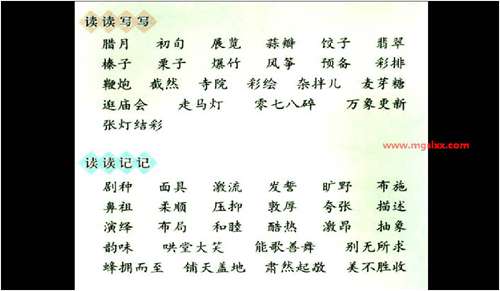 读读写写
腊月 初旬 展览 蒜瓣 饺子 翡翠
榛子 栗子 爆竹 风筝 预备 彩排
鞭炮 截然 寺院 彩绘 杂拌儿 麦芽糖
逛庙会 走马灯 零七八碎 万象更新
张灯结彩
www.mgslxx.com
读读记记
剧种 面具 激流 发誓 旷野 布施
鼻祖 柔顺 压抑 敦厚 夸张 描述
演绎 布局 和睦 酷热 激昂 抽象
韵味 哄堂大笑 能歌善舞 别无所求
蜂拥而至 铺天盖地 肃然起敬 美不胜收